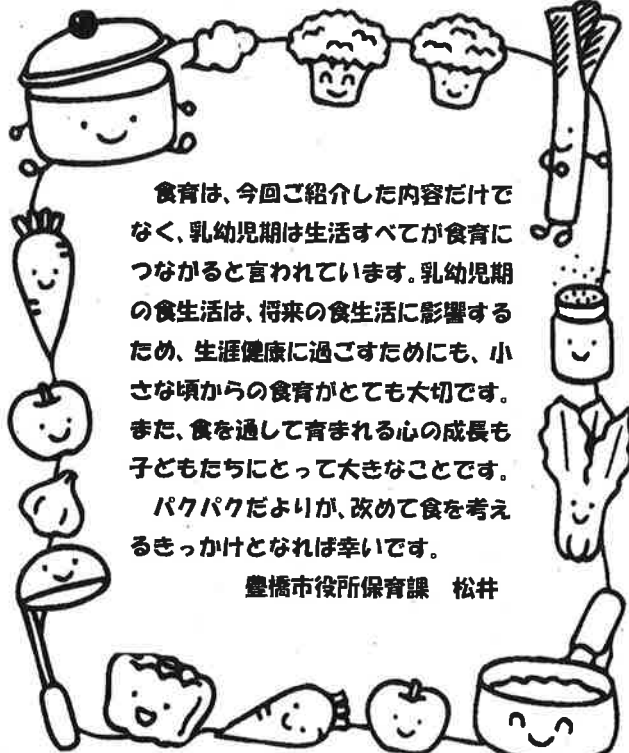 食育は、今回ご紹介した内容だけで
なく、乳幼児期は生活すべてが食育に
つながると言われています。乳幼児期
の食生活は、将来の食生活に影響する
ため、生涯健康に過ごすためにも、小
さな頃からの食育がとても大切です。
また、食を通して育まれる心の成長も
子どもたちにとって大きなことです。
パクパクだよりが、改めて食を考え
るきっかけとなれば幸いです。
豊橋市役所保育課　松井